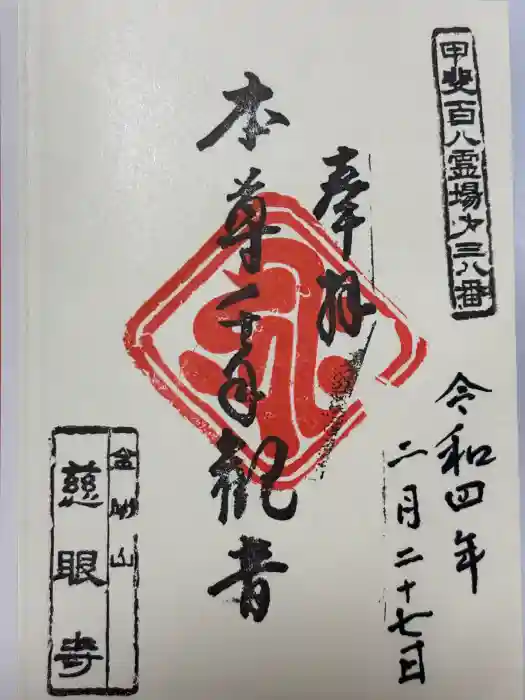 甲斐百八霊場第三八番
奉拝
令和四年
二月二十七日
本尊千手観音
金剛山
慈眼寺